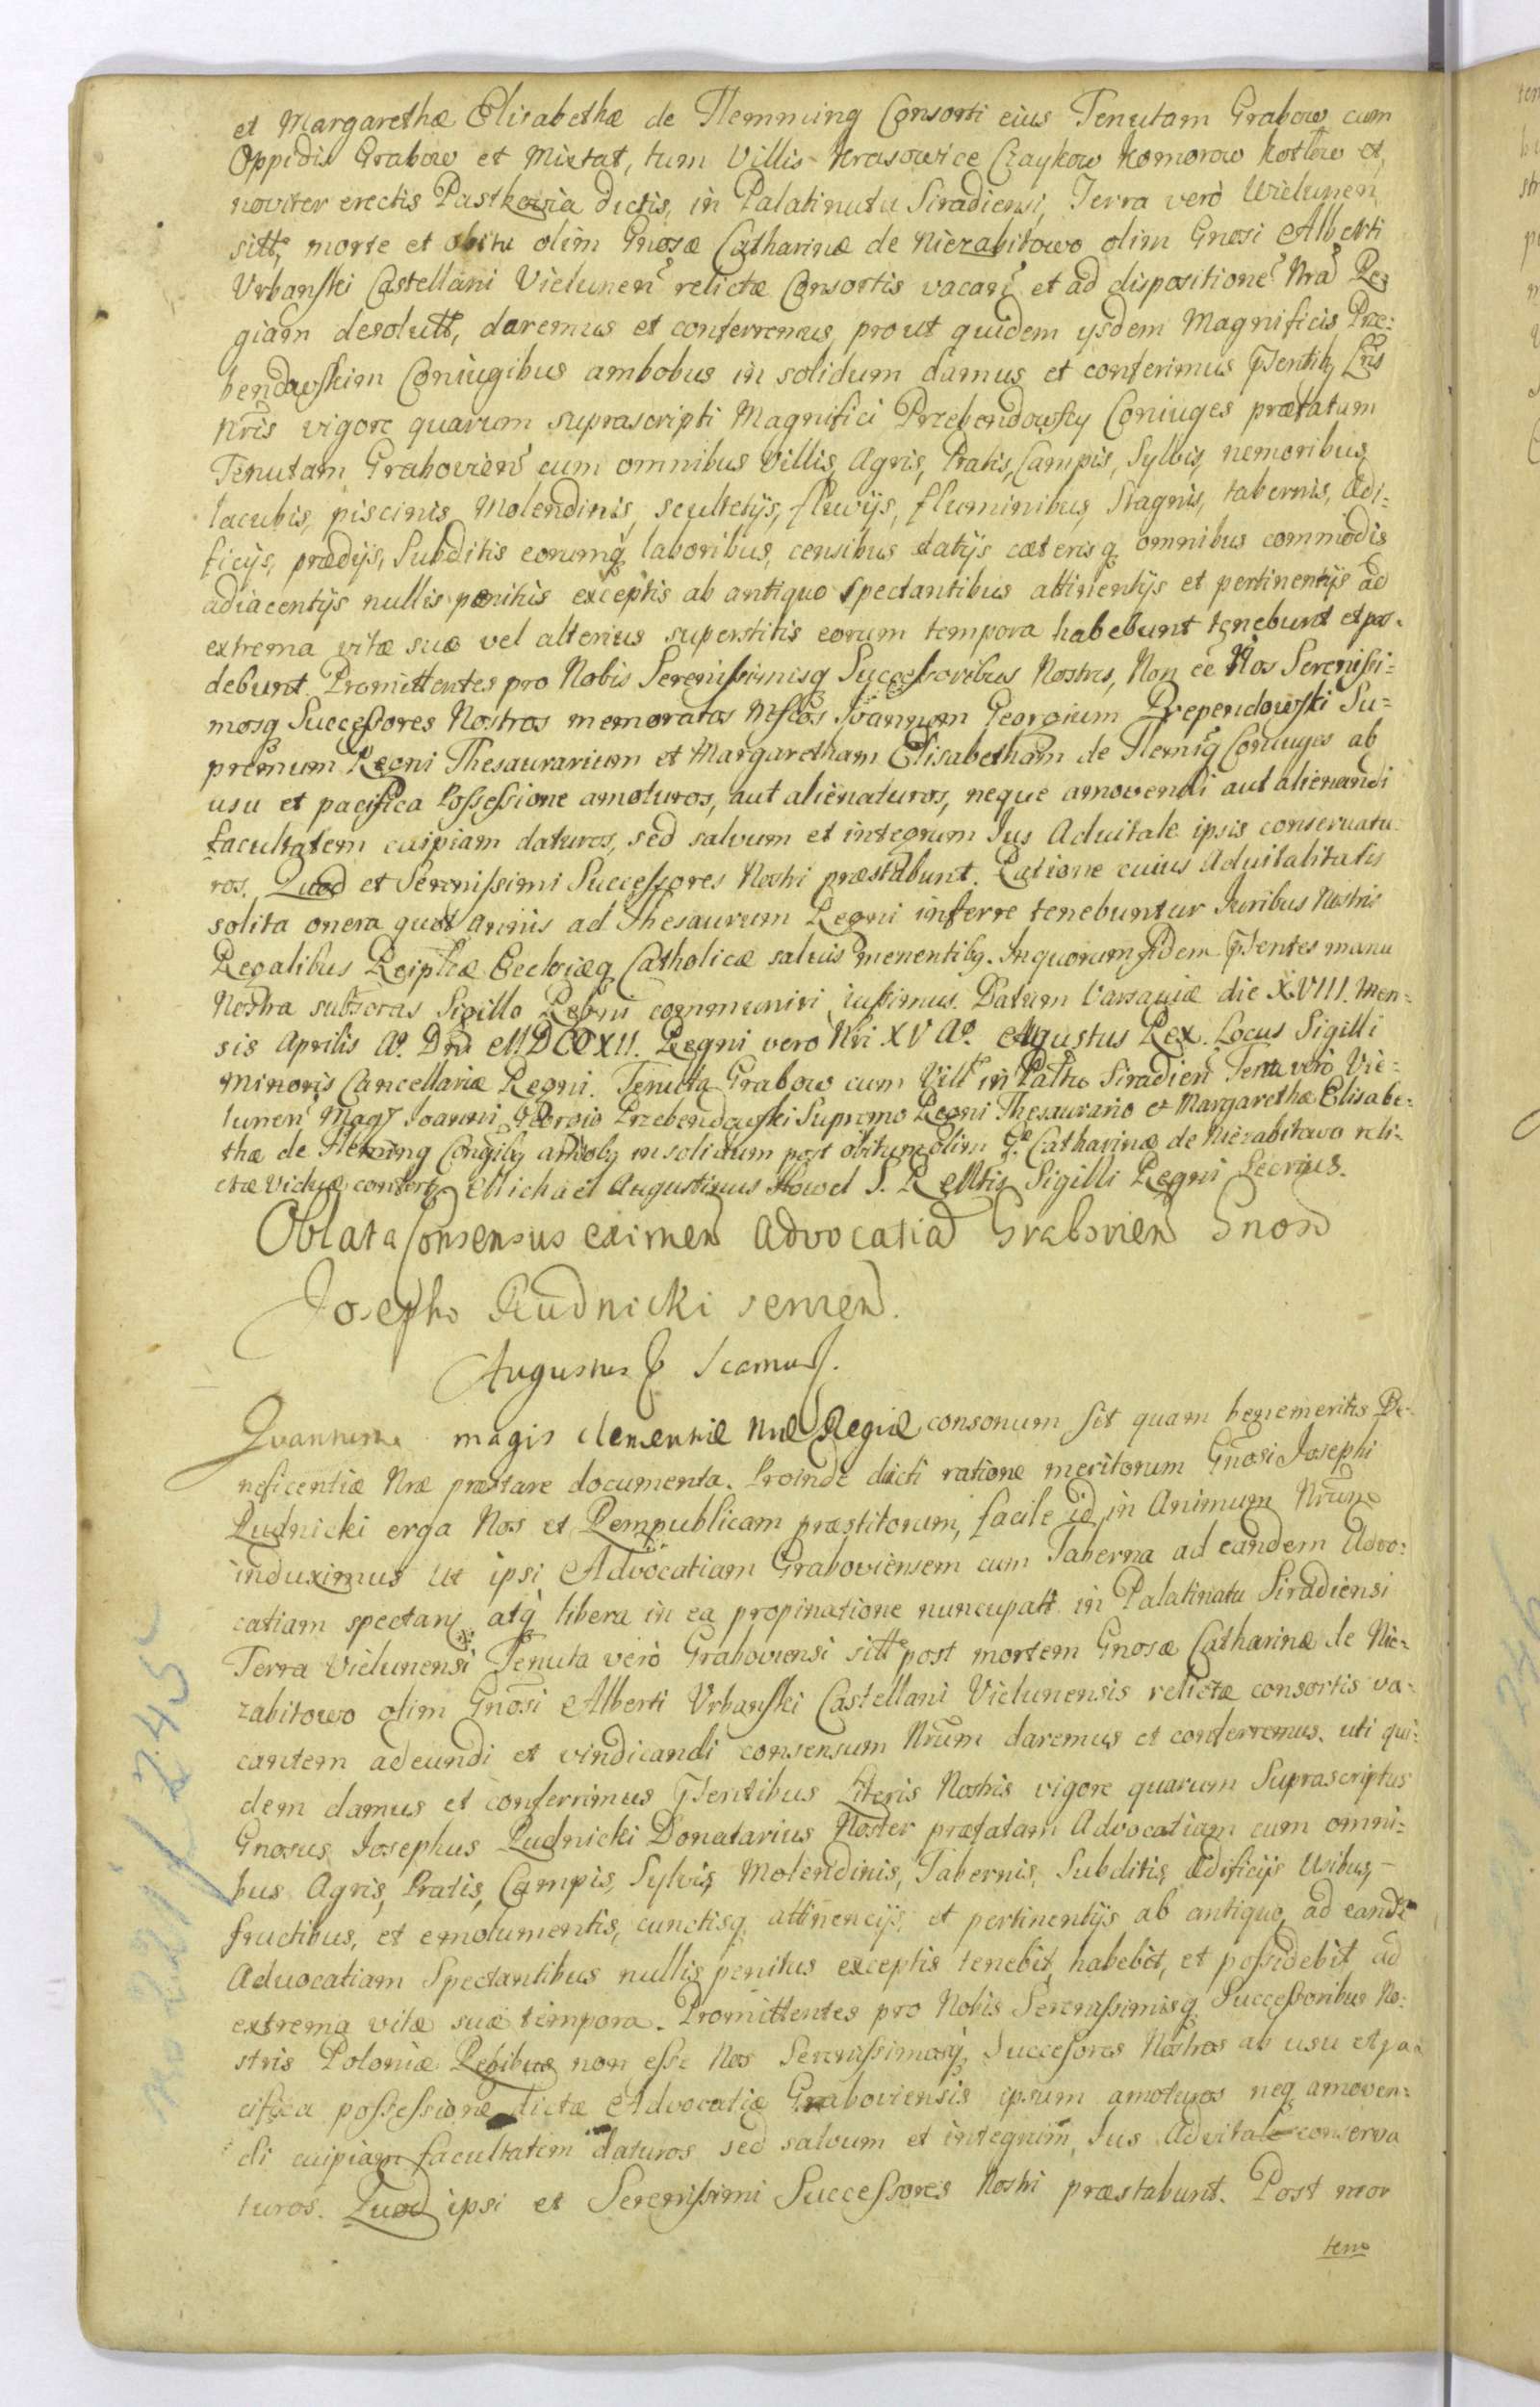 et Margarethæ Elisabethæ de Flemming Consorti eius Tenutam Grabow cum
Oppidis Grabow et Mixtat, tum Villis Krasowice Czaykow Komorow Kotłow et
noviter erectis Pustkowia dictis, in Palatinatu Siradiensi, Terra verò Wielunen
sitt; morte et obitu olim Gnosæ Catharinæ de Niezabitowo olim Gnosi Alberti
Urbanski Castellani Vielunen relictæ Consortis vacan et ad disposition͠e Nra͠ Re
giam devolutt, daremus et conferremus, prout quidem ysdem Magnificis Prze:
bendowskim Coniugibus ambobus in solidum damus et conferimus Pntib Lris
Nris vigore quarum suprascripti Magnifici Przebendowscy Coniuges prætatam
Tenutam Grabovien cum omnibus Villis, Agris, Pratis, Campis, Sylvis, nemoribus
lacubis, piscinis, Molendinis, scultetÿs, fluvÿs, fluminibus, Stagnis, tabernis, ædi-
ficÿs, prædÿs, Subditis eorumq laboribus, censibus datÿs cæterisq omnibus commodis
adiacentÿs nullis penitus exceptis ab antiquo spectantibus attinentÿs et pertinentÿs ad
extrema vitæ suæ vel alterius superstitis eorum tempora habebunt tenebunt et pos-
debunt. Promittentes pro Nobis Serenissimisq Successoribus Nostris, Non ee Nos Serenissi-
mosq Successores Nostros memoratos Mfcos Joannem Georgium Prependowski Su-
premum Regni Thesaurarium et Margaretham Elisabetham de Flemig Coniuges ab
usu et pacifica Possessione amoturos, aut alienaturos, neque amovendi aut alienandi
facultatem cuipiam daturos, sed salvum et integrum Jus Aduitale ipsis conservatu
ros. Quod et Serenissimi Successores Nostri præstabunt. Ratione cuius Aduitalitatis
solita onera quot annis ad Thesaurum Regni inferre tenebuntur Juribus Nostris
Regalibus Reiplcæ Ecclesiæq Catholicæ salvis menentibg. In quorum fidem Pntes manu
Nostra subscras Sigillo Regni communiri iussimus. Datum Varsaviæ die XVIII. Men-
sis Aprilis A° Dni MDCCXII. Regni vero Nri XV A°. Augustus Rex. Locus Sigilli
Minoris Cancellariæ Regni. Tenuta Grabow cum Vill in Pattu Siradien Terra verò Vie-
lunen Magf Joanni Georgio Przebendowski Supremo Regni Thesaurario et Margarethæ Elisabe-
thæ de Fleming Congiby amboby in solidum post obitum olim G. Catharinæ de Niezabitowo reli-
ctæ viduæ confert Michael Augustinus Howel S. R. Mtis Sigilli Regni Secrius.
Oblata Consensus eximen Advocatia Grabovien Gnoso
Josepho Rudnicki servien.
Augustus &c Scamus.
Quantum magis clementiæ Nræ Regiæ consonum sit quam benemeritis Be-
neficentiæ Nræ præstare documenta. Proinde ducti ratione meritorum Gnosi Josephi
Rudnicki erga Nos et Rempublicam præstitorum, facile id in Animum Nrum
induximus Ut ipsi Advocatiam Graboviensem cum Taberna ad eandem Advo:
catiam spectan atq libera in ea propinatione nuncupatt in Palatinatu Siradiensi
Terra Vielunensi Tenuta verò Graboviensi sitt post mortem Gnosæ Catharinæ de Nie-
zabitowo olim Gnosi Alberti Urbanski Castellani Vielunensis relictæ consortis va-
cantem adeundi et vindicandi consensum Nrum daremus et conferremus. uti qui-
dem damus et conferrimus Pntibus Literis Nostris vigore quarum Suprascriptus
Gnosus Josephus Rudnicki Donatarius Noster præfatam Advocatiam cum omni-
bus Agris, Pratis, Campis, Sylvis, Molendinis, Tabernis, Subditis, ædificÿs Usibus,
fructibus, et emolumentis, cunctisq attinencÿs, et pertinentÿs ab antiquo, ad eande
Aduocatiam Spectantibus nullis penitus exceptis tenebit, habebit, et possidebit ad
extrema vitæ suæ tempora. Promittentes pro Nobis Serenissimisq Successoribus No-
stris Poloniæ Regibus non esse Nos Serenissimosq Successores Nostros ab usu et pa-
cifica possessione dictæ Advocatiæ Graboviensis ipsum amoturos neq amoven-
di cuipiam facultatem daturos sed salvum et integrum Jus Advitale conserva
turos. Quod ipsi et Serenissimi Successores Nostri præstabunt. Post mor
tem